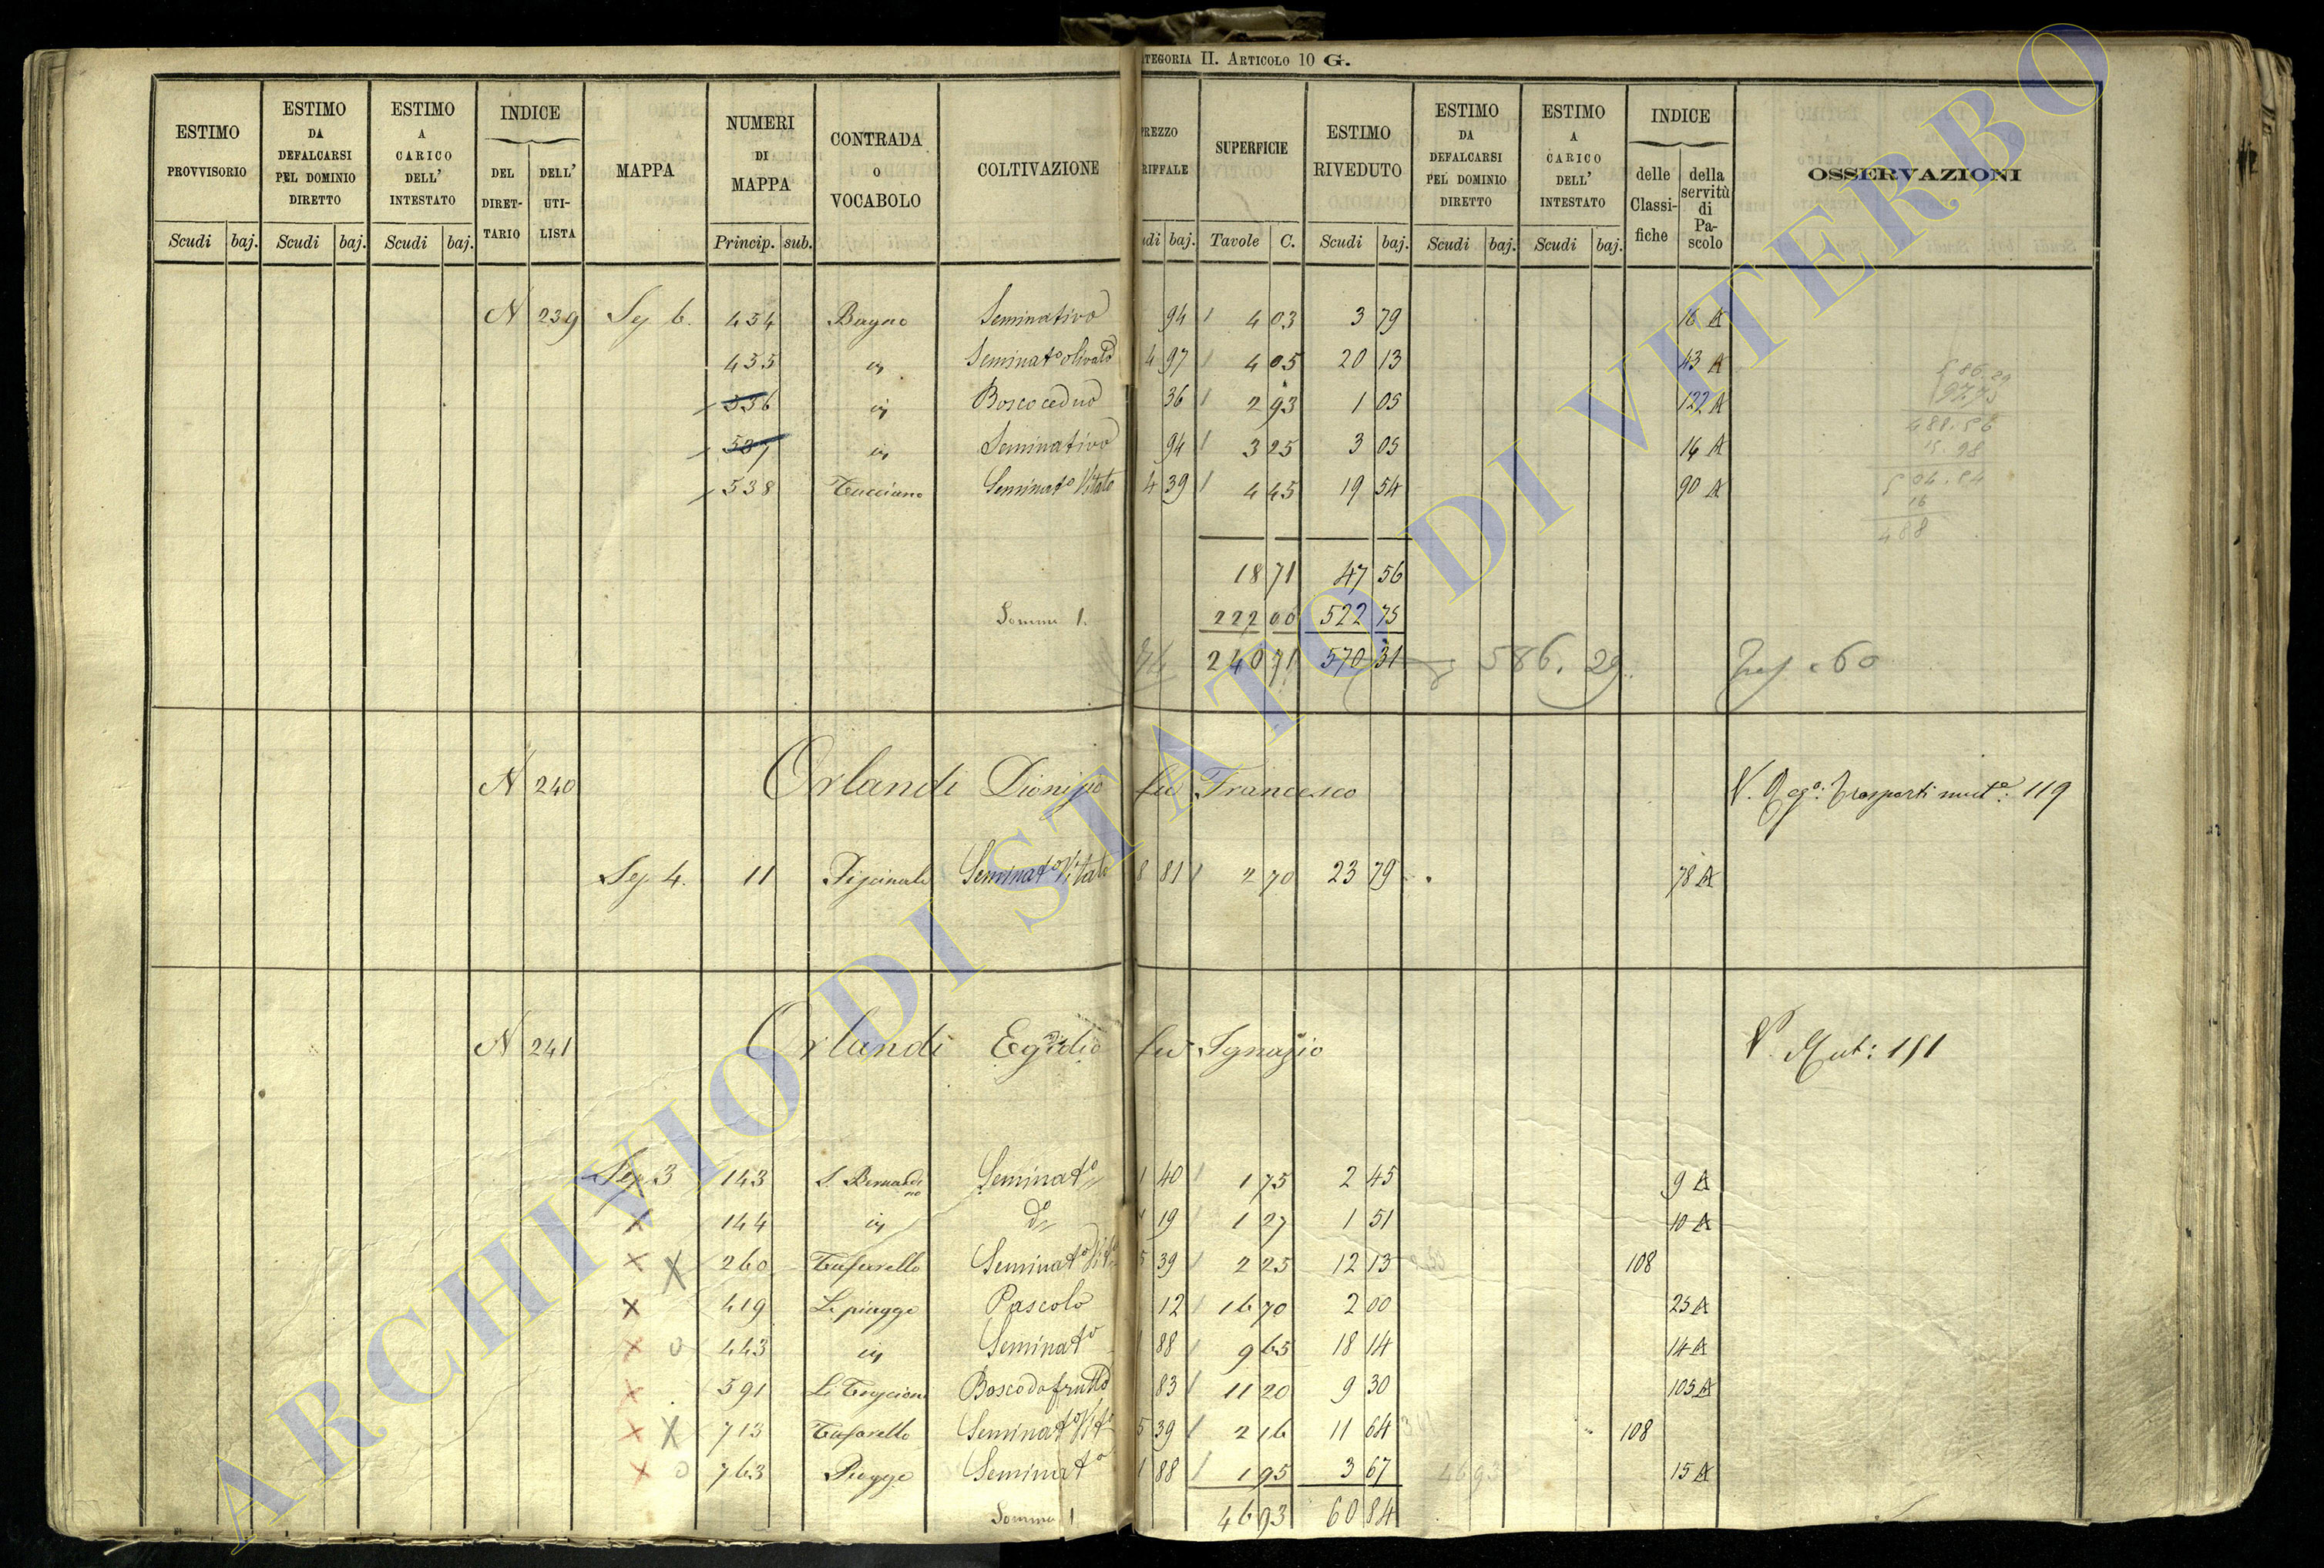 ATEGORIA II. ARTICOLO 10 G.
ESTIMO PROVVISORIO | ESTIMO DA DEFALCARSI PEL DOMINIO DIRETTO | ESTIMO A CARICO DELL' INTESTATO | INDICE DEL DIRET-TARIO | DELL' UTI-LISTA | MAPPA | NUMERI DI MAPPA | CONTRADA O VOCABOLO | COLTIVAZIONE | REZZO RIFFALE | SUPERFICIE | ESTIMO RIVEDUTO | ESTIMO DA DEFALCARSI PEL DOMINIO DIRETTO | ESTIMO A CARICO DELL' INTESTATO | INDICE delle Classi-fiche | della servitù di Pa-scolo | OSSERVAZIONI
Scudi baj. Scudi baj. Scudi baj. Princip. sub. udi baj. Tavole C. Scudi baj. Scudi baj. Scudi baj.
N 239 Sez 6. 454 Bagno Seminativo 94 4 03 3 79 16 A
455 in Seminato olivato 4 97 4 05 20 13 43 A
536 in Bosco ceduo 36 2 93 1 05 122 A
537 in Seminativo 94 3 25 3 05 16 A
538 Tucciano Seminato Vitato 4 39 4 45 19 54 90 A
488.56
504.84
16
488
18 71 47 56
Somma 1. 222 00 522 75
240 71 570 31 586.29 60
N 240 Orlandi Dionisio fu Francesco V. Reg.o Trasporti mut.e 119
Sez 4. 11 Piscinale Seminato Vitato 8 81 2 70 23 79 78 A
N 241 Orlandi Egidio fu Ignazio V. Mut: 181
Sez 3 143 S. Bernardino Seminato 1 40 1 75 2 45 9 A
X 144 in do 1 19 1 27 1 51 10 A
X X 260 Tufarello Seminato Vito 5 39 2 25 12 13 108
X 419 Le piagge Pascolo 12 16 70 2 00 25 A
X o 443 in Seminato 1 88 9 65 18 14 14 A
X 591 Bosco da frutto 83 11 20 9 30 105 A
X X 713 Tufarello Seminato Vito 5 39 2 16 11 64 108
X o 763 Piagge Seminato 1 88 1 95 3 67 46 93 15 A
Somma 1 46 93 60 84
ARCHIVIO DI STATO DI VITERBO